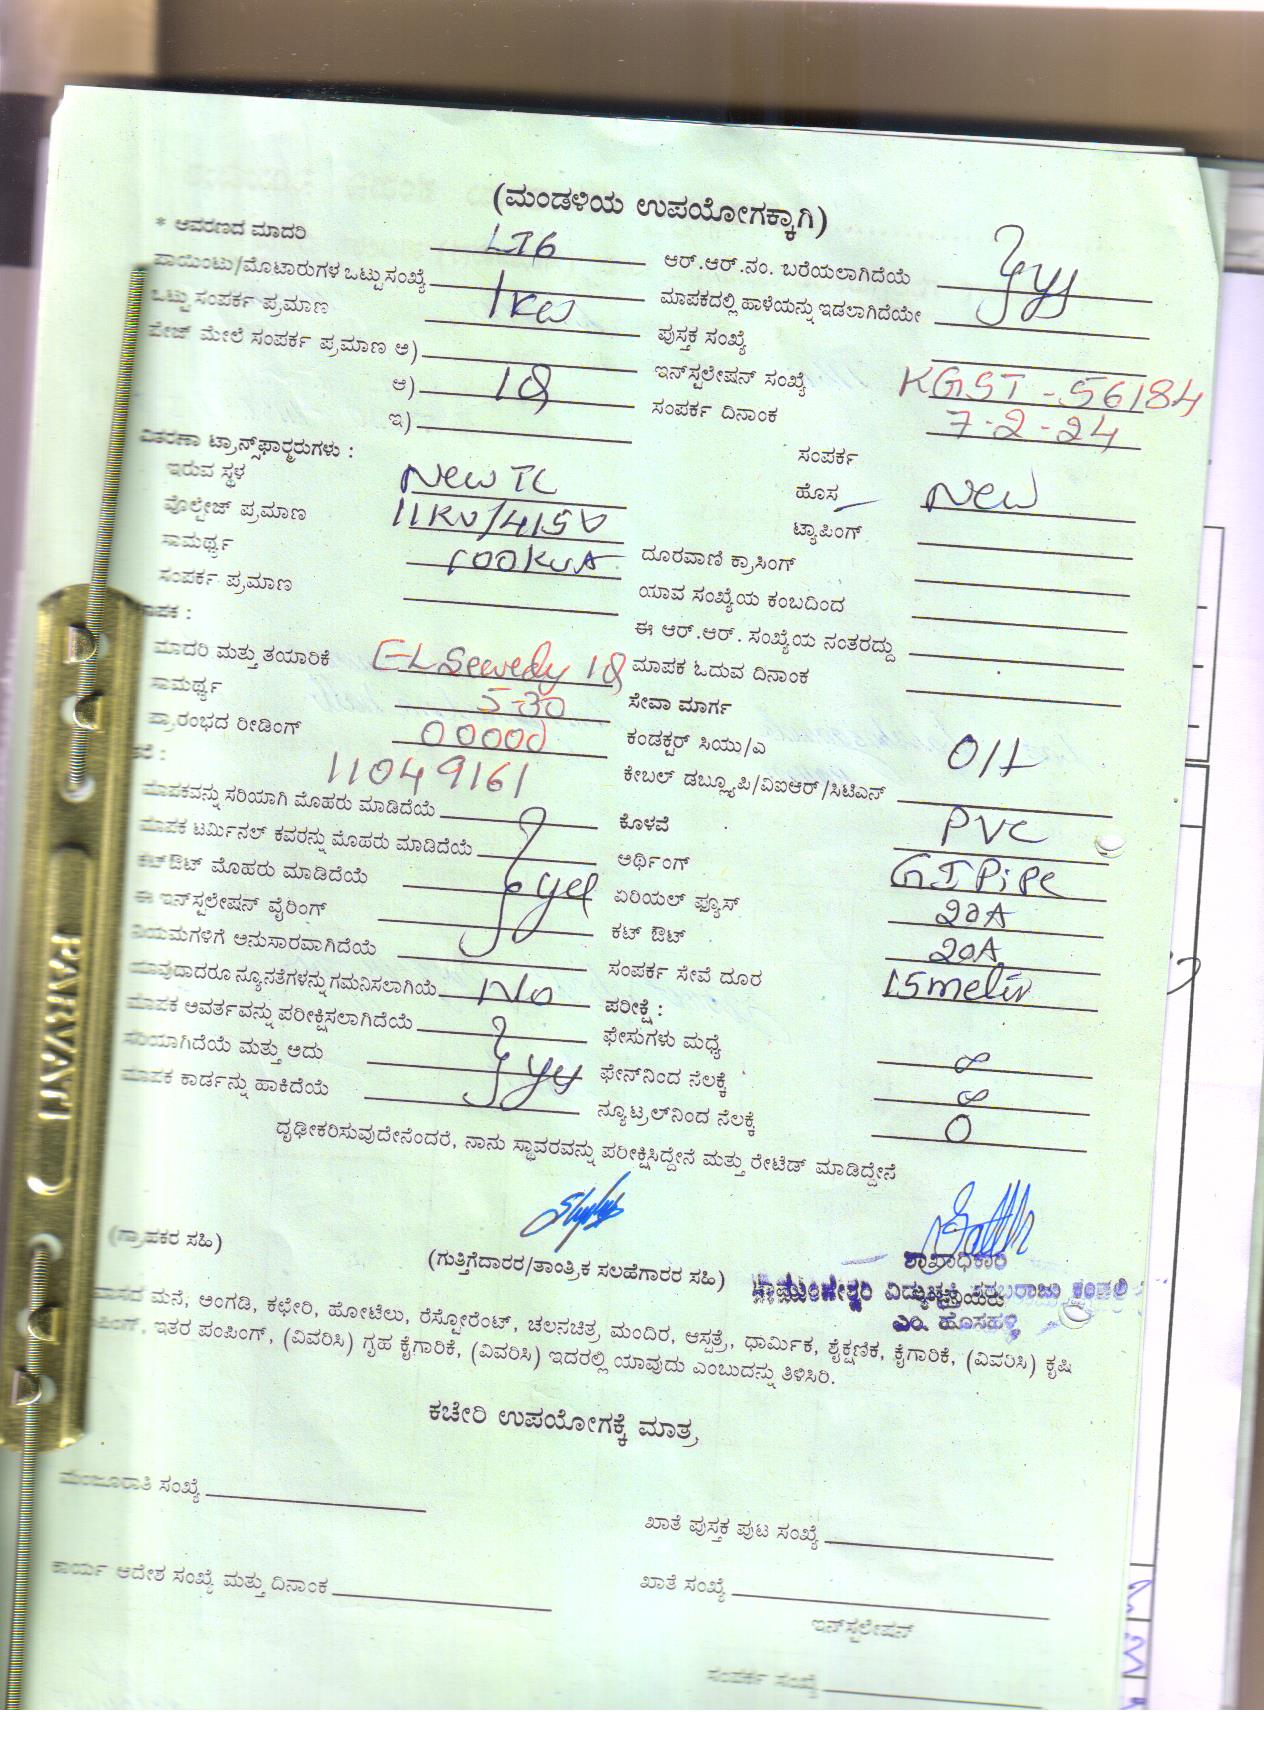 (ಮಂಡಳಿಯ ಉಪಯೋಗಕ್ಕಾಗಿ)
* ಆವರಣದ ಮಾದರಿ LT6 ಆರ್.ಆರ್.ನಂ. ಬರೆಯಲಾಗಿದೆಯೆ
ಪಾಯಿಂಟು/ಮೊಟಾರುಗಳ ಒಟ್ಟು ಸಂಖ್ಯೆ ಮಾಪಕದಲ್ಲಿ ಹಾಳೆಯನ್ನು ಇಡಲಾಗಿದೆಯೇ
ಒಟ್ಟು ಸಂಪರ್ಕ ಪ್ರಮಾಣ 1kw ಪುಸ್ತಕ ಸಂಖ್ಯೆ
ಪೇಜ್ ಮೇಲೆ ಸಂಪರ್ಕ ಪ್ರಮಾಣ ಅ) ಇನ್‌ಸ್ಟಲೇಷನ್ ಸಂಖ್ಯೆ KGST-56184
ಆ) 1Φ ಸಂಪರ್ಕ ದಿನಾಂಕ 7-2-24
ಇ)
ಸಂಪರ್ಕ
ವಿತರಣಾ ಟ್ರಾನ್ಸ್‌ಫಾರ್ಮರುಗಳು :
ಇರುವ ಸ್ಥಳ New TC ಹೊಸ New
ವೊಲ್ಟೇಜ್ ಪ್ರಮಾಣ 11KV/415V ಟ್ಯಾಪಿಂಗ್
ಸಾಮರ್ಥ್ಯ 100KVA ದೂರವಾಣಿ ಕ್ರಾಸಿಂಗ್
ಸಂಪರ್ಕ ಪ್ರಮಾಣ ಯಾವ ಸಂಖ್ಯೆಯ ಕಂಬದಿಂದ
ಈ ಆರ್.ಆರ್. ಸಂಖ್ಯೆಯ ನಂತರದ್ದು
ಮಾದರಿ ಮತ್ತು ತಯಾರಿಕೆ EL Sewedy 1Φ ಮಾಪಕ ಓದುವ ದಿನಾಂಕ
ಸಾಮರ್ಥ್ಯ 5-30 ಸೇವಾ ಮಾರ್ಗ
ಪ್ರಾರಂಭದ ರೀಡಿಂಗ್ 00000 ಕಂಡಕ್ಟರ್ ಸಿಯು/ಎ O/H
11049161 ಕೇಬಲ್ ಡಬ್ಲ್ಯೂಪಿ/ವಿಐಆರ್/ಸಿಟಿಎಸ್
ಮಾಪಕವನ್ನು ಸರಿಯಾಗಿ ಮೊಹರು ಮಾಡಿದೆಯೆ ಕೊಳವೆ PVC
ಮಾಪಕ ಟರ್ಮಿನಲ್ ಕವರನ್ನು ಮೊಹರು ಮಾಡಿದೆಯೆ ಅರ್ಥಿಂಗ್ GI Pipe
ಕಟ್‌ಔಟ್ ಮೊಹರು ಮಾಡಿದೆಯೆ ಏರಿಯಲ್ ಫ್ಯೂಸ್ 20A
ಈ ಇನ್‌ಸ್ಟಲೇಷನ್ ವೈರಿಂಗ್ ಕಟ್ ಔಟ್ 20A
ನಿಯಮಗಳಿಗೆ ಅನುಸಾರವಾಗಿದೆಯೆ ಸಂಪರ್ಕ ಸೇವೆ ದೂರ 15 meter
ಯಾವುದಾದರೂ ನ್ಯೂನತೆಗಳನ್ನು ಗಮನಿಸಲಾಗಿಯೆ No ಪರೀಕ್ಷೆ :
ಮಾಪಕ ಆವರ್ತವನ್ನು ಪರೀಕ್ಷಿಸಲಾಗಿದೆಯೆ ಫೇಸುಗಳು ಮಧ್ಯೆ ∞
ಸರಿಯಾಗಿದೆಯೆ ಮತ್ತು ಅದು ಫೇಸ್‌ನಿಂದ ನೆಲಕ್ಕೆ ∞
ಮಾಪಕ ಕಾರ್ಡನ್ನು ಹಾಕಿದೆಯೆ ನ್ಯೂಟ್ರಲ್‌ನಿಂದ ನೆಲಕ್ಕೆ 0
ದೃಢೀಕರಿಸುವುದೇನೆಂದರೆ, ನಾನು ಸ್ಥಾವರವನ್ನು ಪರೀಕ್ಷಿಸಿದ್ದೇನೆ ಮತ್ತು ರೇಟೆಡ್ ಮಾಡಿದ್ದೇನೆ
(ಗ್ರಾಹಕರ ಸಹಿ) (ಗುತ್ತಿಗೆದಾರರ/ತಾಂತ್ರಿಕ ಸಲಹೆಗಾರರ ಸಹಿ) ಶಾಖಾಧಿಕಾರಿ
ಎಂ. ಹೊಸಹಳ್ಳಿ
ಮನೆ, ಅಂಗಡಿ, ಕಛೇರಿ, ಹೋಟೆಲು, ರೆಸ್ಟೋರೆಂಟ್, ಚಲನಚಿತ್ರ ಮಂದಿರ, ಆಸ್ಪತ್ರೆ, ಧಾರ್ಮಿಕ, ಶೈಕ್ಷಣಿಕ, ಕೈಗಾರಿಕೆ, (ವಿವರಿಸಿ) ಕೃಷಿ
ಇತರ ಪಂಪಿಂಗ್, (ವಿವರಿಸಿ) ಗೃಹ ಕೈಗಾರಿಕೆ, (ವಿವರಿಸಿ) ಇದರಲ್ಲಿ ಯಾವುದು ಎಂಬುದನ್ನು ತಿಳಿಸಿರಿ.
ಕಚೇರಿ ಉಪಯೋಗಕ್ಕೆ ಮಾತ್ರ
ಮಂಜೂರಾತಿ ಸಂಖ್ಯೆ ಖಾತೆ ಪುಸ್ತಕ ಪುಟ ಸಂಖ್ಯೆ
ಕಾರ್ಯ ಆದೇಶ ಸಂಖ್ಯೆ ಮತ್ತು ದಿನಾಂಕ ಖಾತೆ ಸಂಖ್ಯೆ
ಇನ್‌ಸ್ಟಲೇಷನ್
ಸಂಪರ್ಕ ಸಂಖ್ಯೆ
PARVATI